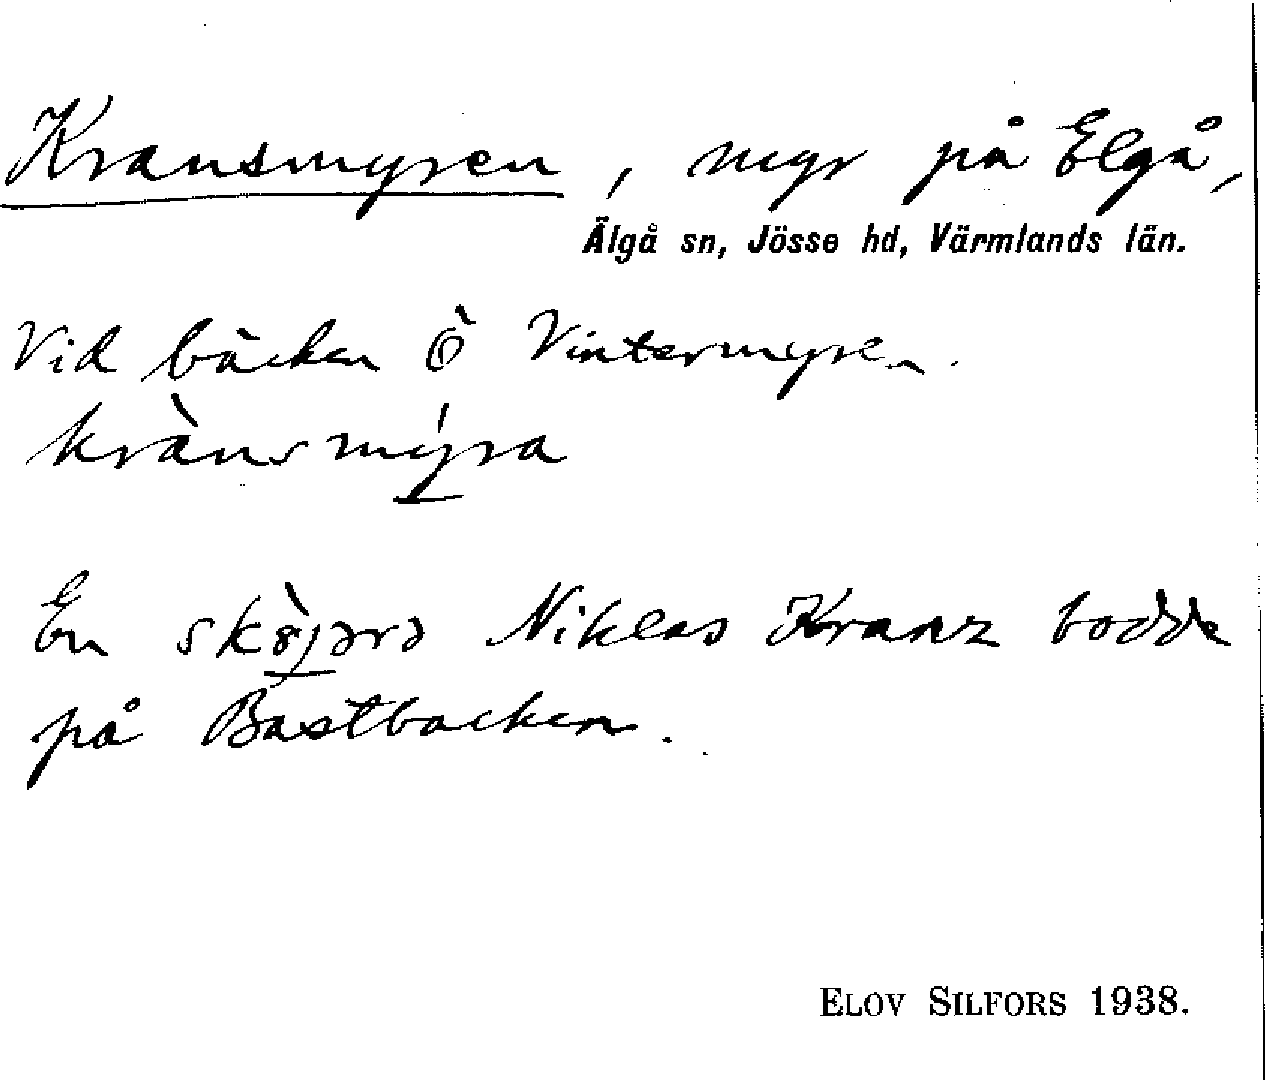 Kransmyren, myr på Elgå,
Älgå sn, Jösse hd, Värmlands län.
Vid bäcken Ö Vintermyren.
krànsmýra
En skö̀jərə Niklas Kranz bodde
på Bastbacken.
ELOV SILFORS 1938.